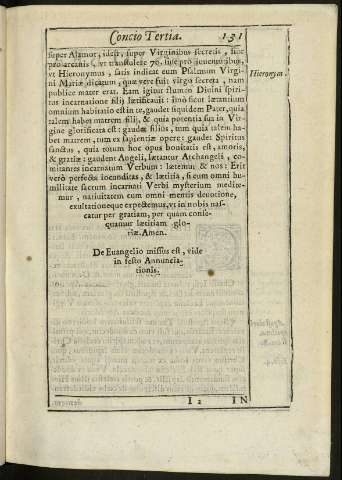 Concio Tertia. 131
super Alamot, idest, super Virginibus secretis, siue
pro arcanis, vt transtulere 70. siue pro iuuentutibus,
vt Hieronymus, satis indicat eum Psalmum Virgi-
ni Mariæ dicatum, quæ vere fuit virgo secreta, nam
publice mater erat. Eam igitur flumen Diuini spiri-
tus incarnatione filij lætificauit: imò sicut lætantium
omnium habitatio est in te, gaudet siquidem Pater, quia
talem habet matrem filij, & quia potentia sua in Vir-
gine glorificata est: gaudet filius, tum quia talem ha-
bet matrem, tum ex sapientiæ opere: gaudet Spiritus
sanctus, quia totum hoc opus bonitatis est, amoris,
& gratiæ: gaudent Angeli, lætantur Archangeli, co-
mitantes incarnatum Verbum: lætemur & nos: Erit
verò perfecta iocunditas, & lætitia, si cum omni hu-
militate sacrum incarnati Verbi mysterium medite-
mur, natiuitatem cum omni mentis deuotione,
exultationeque expectemus, vt in nobis nas-
catur per gratiam, per quam conse-
quamur lætitiam glo-
riæ. Amen.
Hieronym.
De Euangelio missus est, vide
in festo Annuncia-
tionis.
I 2 IN